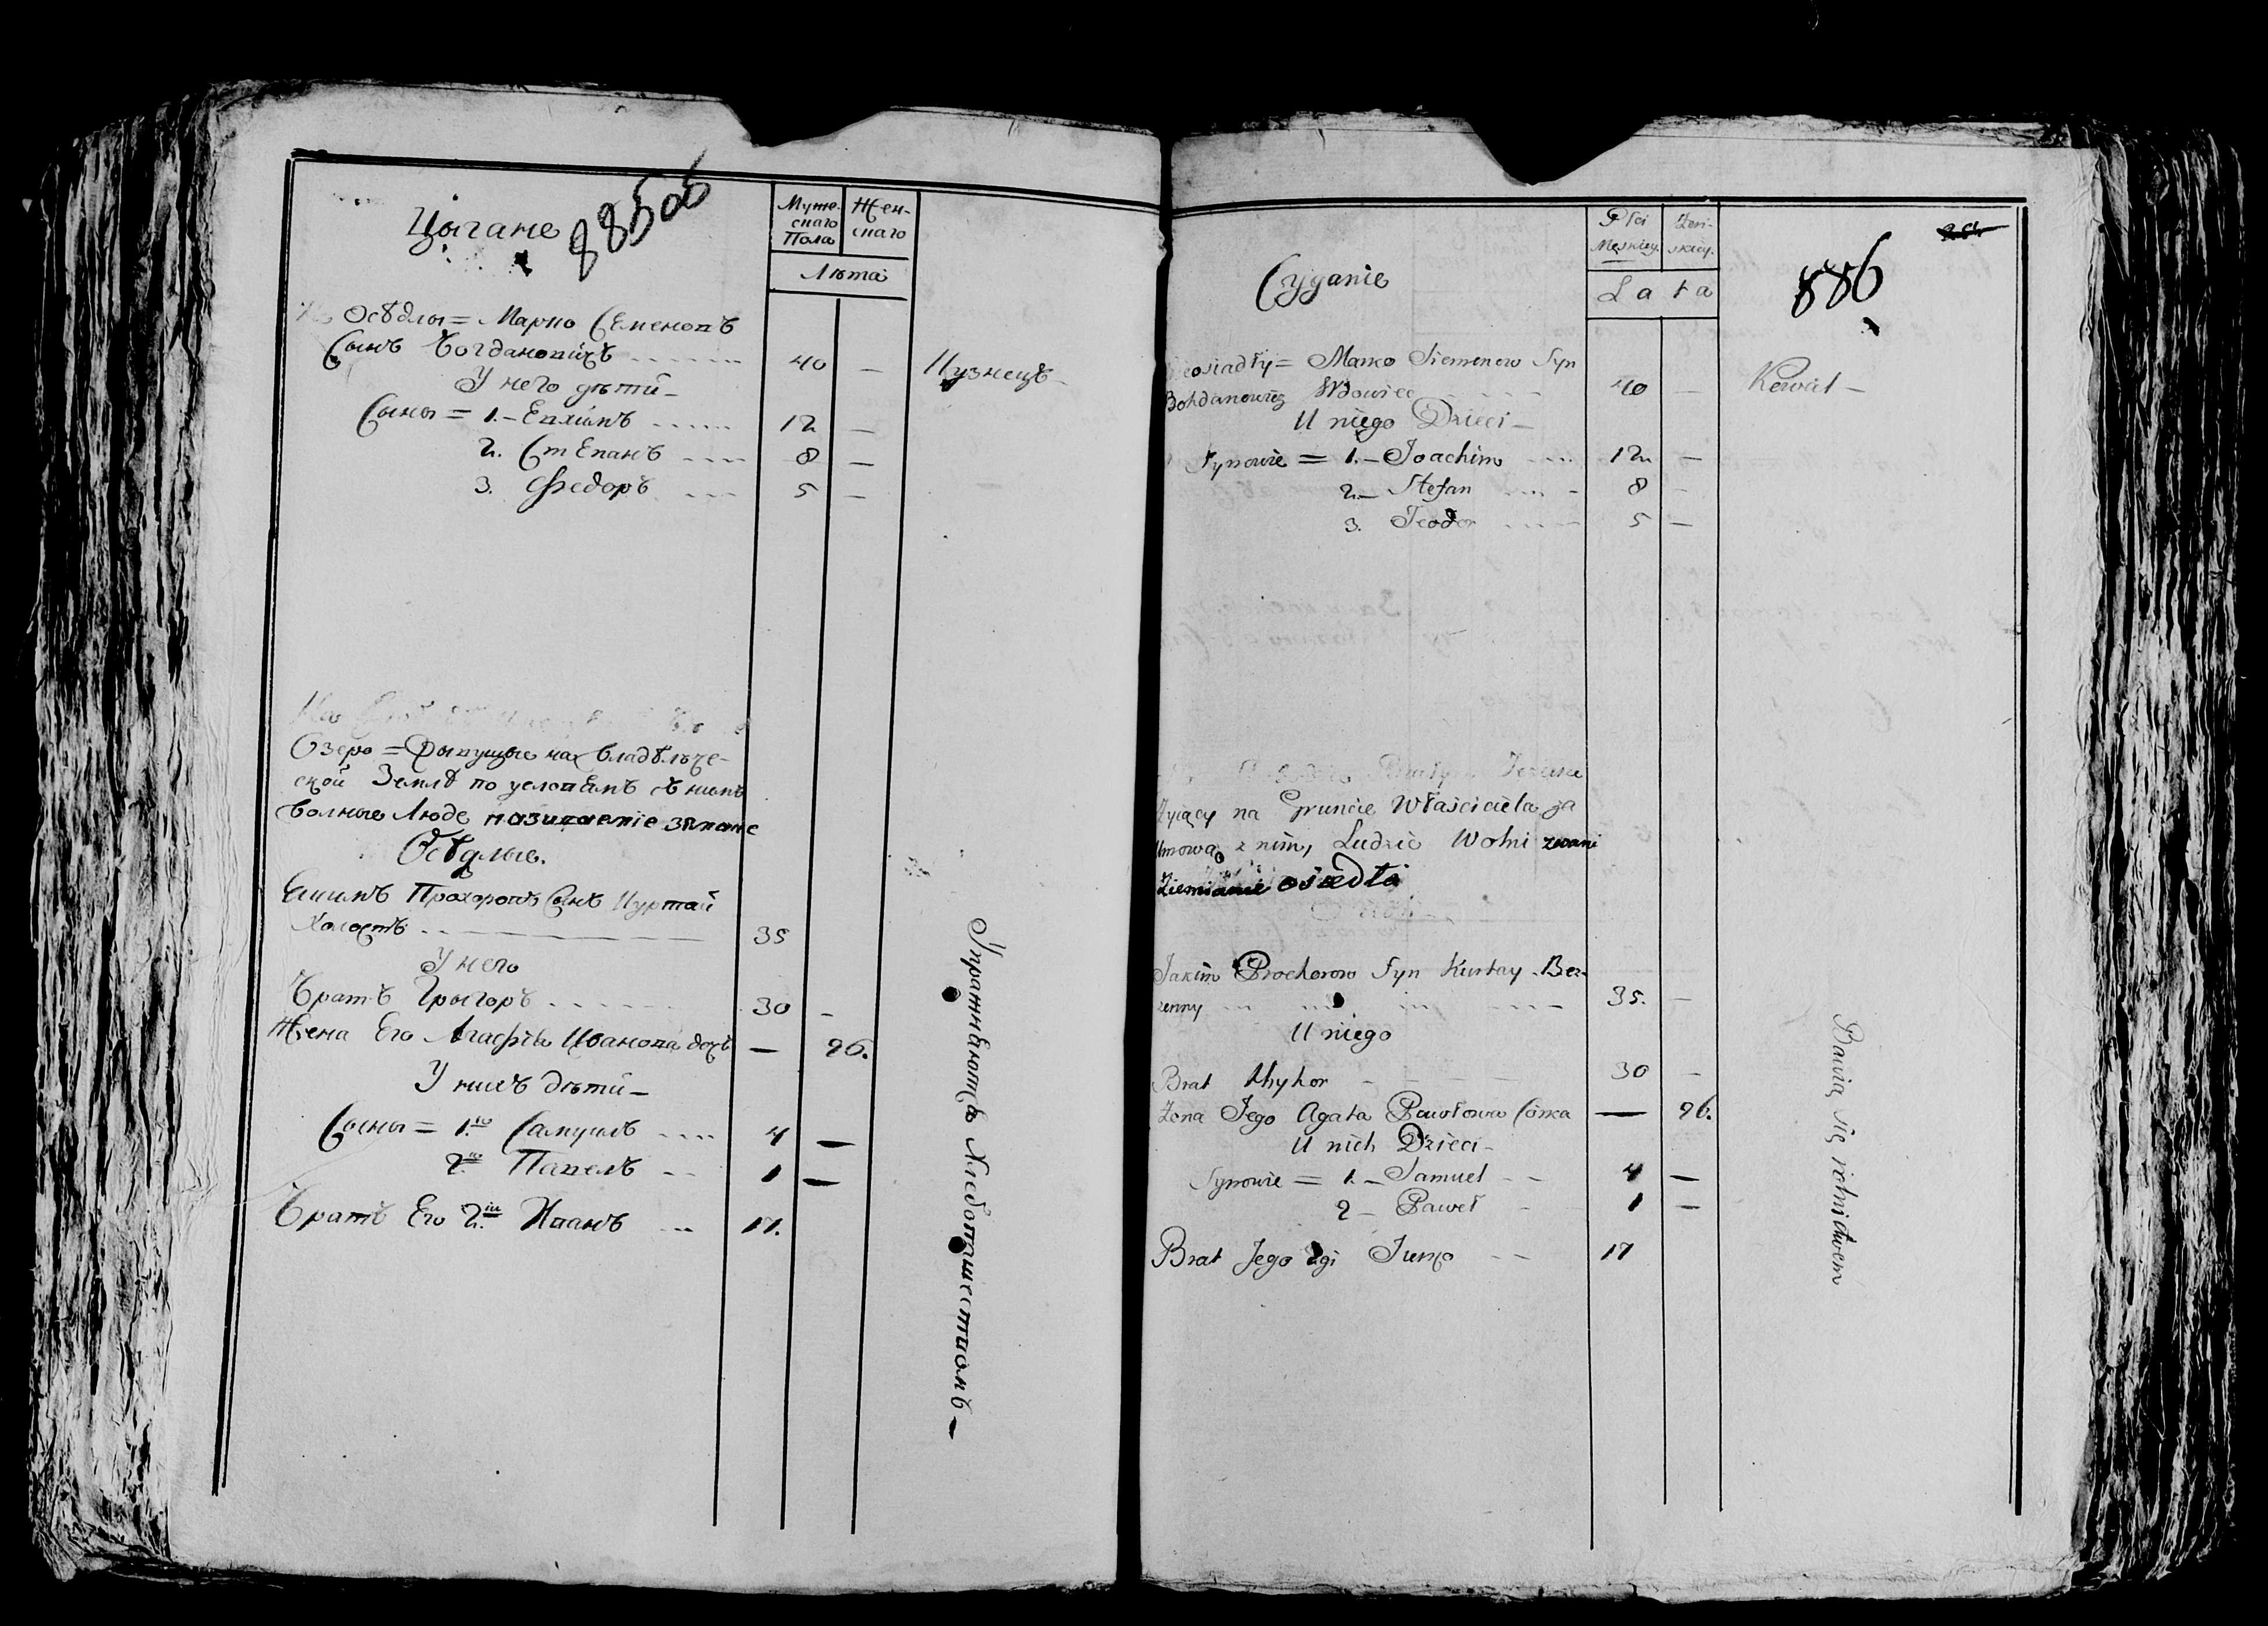 Цыгане
885об
Муже-
скаго
Пола
Жен-
скаго
Лѣта
Осѣдлы = Марко Семеновъ
Сынъ Богдановичъ 40 —
Кузнецъ —
У него дѣти —
Сыны = 1. — Еахимъ 12 —
2. Степанъ 8 —
3. Федоръ 5 —
На
Озеро = Рыпущые на владѣльче-
ской Землѣ по условіямъ съ нимъ
Волные Люде
Осѣдлые.
Екимъ Прохоровъ Сынъ Куртай
Холостъ 35
У него
Братъ Грыгоръ 30 —
Жена Его Агафія Иванова дочь — 26.
У нихъ дѣти —
Сыны = 1.й Самуилъ 4 —
2.й Павелъ 1 —
Братъ Его 2.й Иванъ 17.
Упражняются Хлебопашествомъ —
Cyganie
Płci
Męskiey.
Żeń-
skiey.
Lata
886
Nieosiadły = Marko Siemenow Syn
Bohdanowicz Wdowiec 40 —
Kowal —
U niego Dzieci —
Synowie = 1. — Joachim 12 —
2. — Stefan 8 —
3. Teodor 5 —
Żyiący na Gruncie Właściciela za
Umową z nim, Ludzie Wolni zwani
Ziemianie osiedli
Jakim Prochorow Syn Kurtay Bez-
żenny 35. —
U niego
Brat Hryhor 30 —
Żona Jego Agata Pawłowa Córka — 26.
U nich Dzieci —
Synowie = 1. — Samuel 4 —
2 — Paweł 1 —
Brat Jego 2gi 17
Bawią się rolnictwem